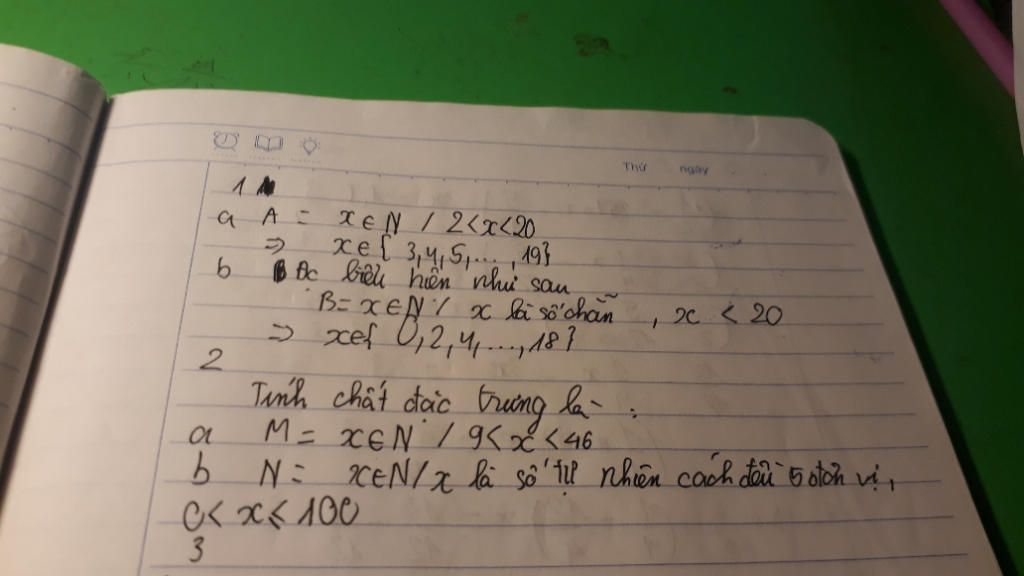 Thứ ngày
1
a A = x∈N / 2<x<20
⇒ x∈{ 3,4,5,...,19}
b Ac biểu hiện như sau
B= x∈N / x là số chẵn , x < 20
⇒ x∈{ 0,2,4,...,18}
2
Tính chất đặc trưng là :
a M = x∈N / 9<x<46
b N = x∈N/x là số tự nhiên cách đều 5 đơn vị,
0< x≤100
3